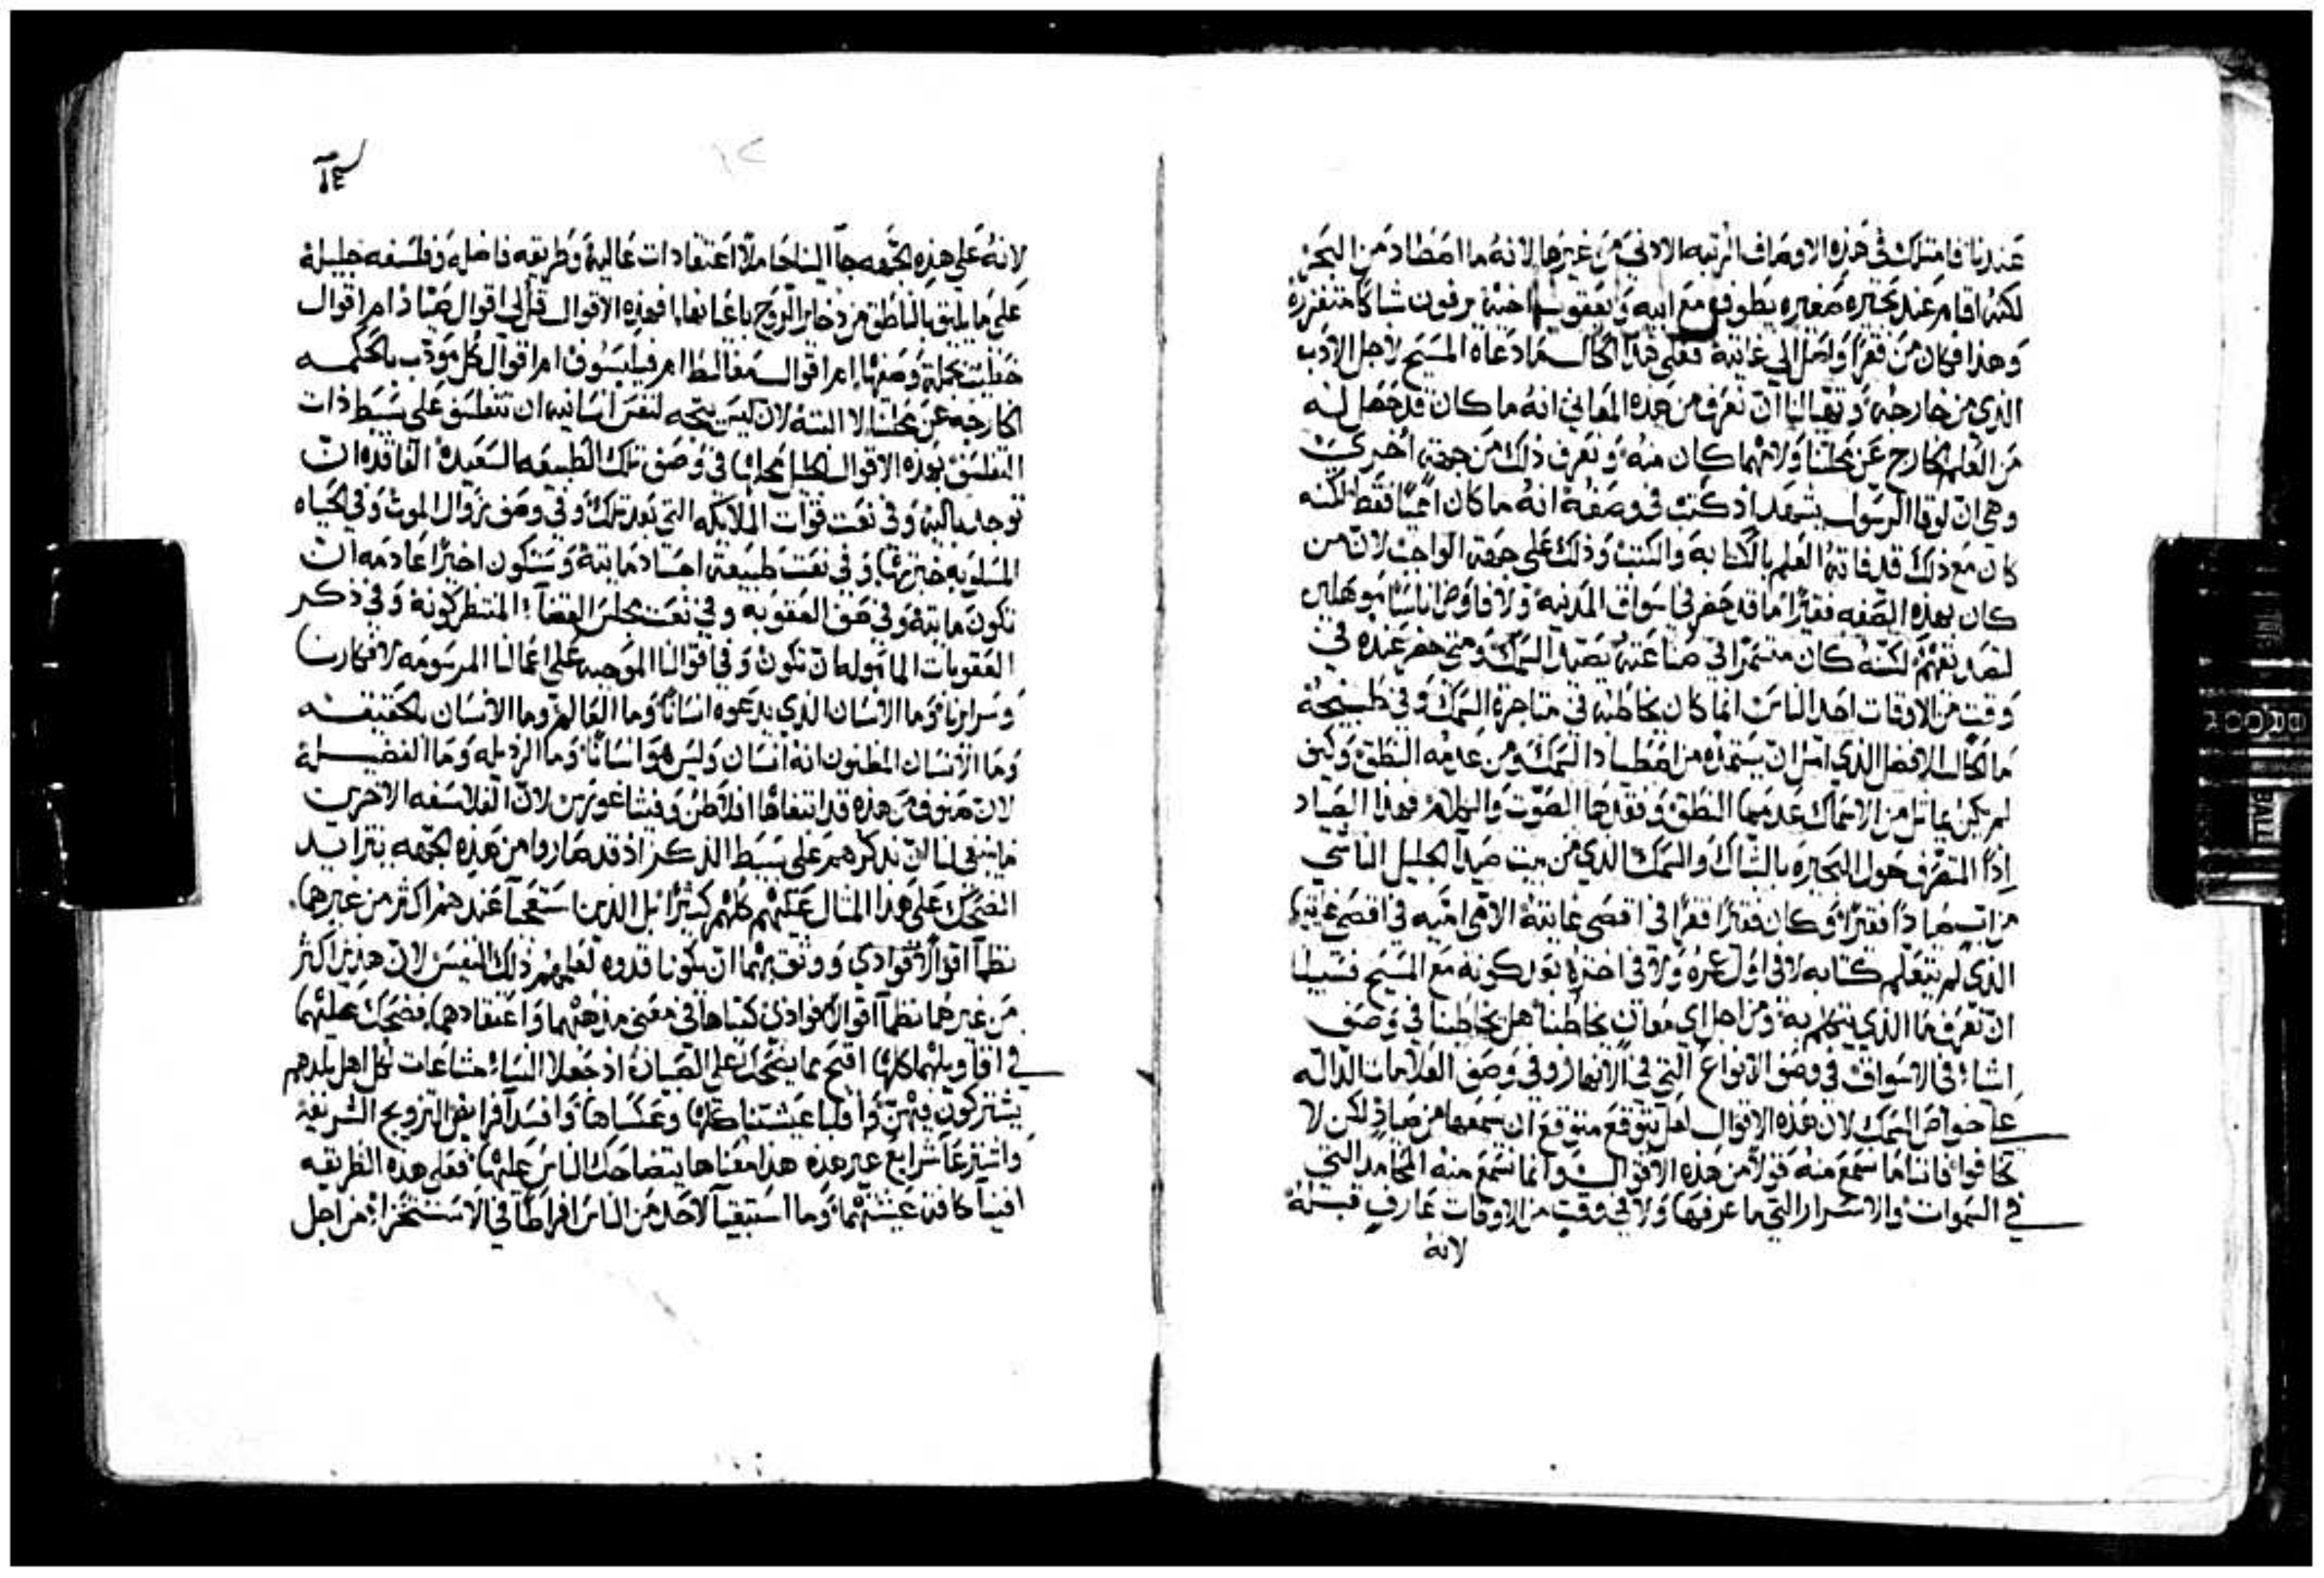 عندنا فامتلك في هذه الاوصاف الرتبه الادني من غيرها لانه ما اصطاد من البحر
لكنه اقام عند بحيره صغيره يطوف مع ابيه ويعقوب اخيه يرفون شباكا متفزره
وهذا فكان من فقرا واصل الي غايته فعلى هذا الحال دعاه المسيح لاجل الادب
الذي من خارجه وتعالنا ان نعرف من هذه المعاني انه ما كان قد حصل له
من العلم الخارج عن نحلتنا ولا مهما كان منه ونعرف ذلك من جهة اخري
وهي ان لوقا الرسول يشهد اذ كتب في وصفه انه ما كان اميا فقط لكنه
كان مع ذلك قد فاته العلم بالكتابه والكتب وذلك على جهة الواجب لان من
كان بهذه الصفه فقيرا ما قد حضر في اسواق المدنيه ولا فاوض اناسا موهلين
لقصد تفهم لكنه كان مستمرا في صناعته بصيد السمك ومتى حضر عنده في
وقت من الاوقات احد الناس انما كان يخاطبه في متاجرة السمك وفي طبيخه
ما الحال الافضل الذي امل ان يستمده من اصطياد السمك ومن عديمه النطق وكيف
لم يكن يماثل من الاسماك عدمها النطق وفقدها الصوت والكلام فهذا الصياد
اذا المتصرف حول البحيره بالشباك والسمك الذي من بيت صيدا الجليل الناشي
من اب صيادا فقيرا وكان فقيرا فقرا في اقصى غايته الامي اميه في اقصى غايتها
الذي لم يتعلم كتابه لا في اول عمره ولا في اخره بعد كونه مع المسيح فسبيلنا
ان نعرف ما الذي يتكلم به ومن اجل اي معان يخاطبنا هل يخاطبنا في وصف
اشيا في الاسواق في وصف الانواع التي في الانهار وفي وصف العلامات الداله
على خواص السمك لان هذه الاقوال لعل يتوقع متوقع ان يسمعها من صياد لكن لا
تخافوا فاننا ما نسمع منه قولا من هذه الاقوال وانما نسمع منه المحامد التي
في السموات والاسرار التي ما عرفها ولا في وقت من الاوقات عارف قبله
لانه
١٢
لانه على هذه الجهه جآ الينا حاملا اعتقادات عاليه وطريقه فاضله وفلسفه جليله
على ما يليق بالناطق من ذخاير الروح باعيانها افهذه الاقوال قل لي اقوال صياد ام اقوال
خطيب بجملة وصفها ام اقوال مغالط ام فيلسوف ام اقوال كل مودب بالحكمه
الخارجه عن نحلتنا لا البته لان ليس يتجه لنفس انسانيه ان تتفلسف على بسيط ذات
التفلسف بهذه الاقوال في وصف تلك الطبيعه السعيده الفاقده ان
توجد باليه وفي نعت قوات الملايكه التي بعد تلك وفي وصف زوال الموت وفي الحياه
المسلوبه خبرتها وفي نعت طبيعة اجساد مايته وستكون اخيرا عادمه ان
تكون مايته وفي وصف العقوبه وفي نعت مجلس القضآ المنتظر كونه وفي ذكر
العقوبات المامولها ان تكون وفي اقوالنا الموجبه على اعمالنا المرسومه لافكارنا
وسرايرنا وما الانسان الذي يدعوه انسانا وما العالم وما الانسان بالحقيقه
وما الانسان المظنون انه انسان وليس هو انسانا وما الرذيله وما الفضيله
لان صنوف من هذه قد ابتغاها افلاطن وفيثاغورس لان الفلاسفه الاخرين
ما ينبغي لنا ان نذكرهم على بسيط الذكر اذ قد صاروا من هذه الجهه يتزايد
الضحك على هذا المثال عليهم كلهم كثيرا بل الذين استعجبا عندهم اكثر من غيرهما
نظما اقوالا فوادي ووثق بهما ان يكونا قدوه لعلمهم ذلك النفيس لان هذين اكثر
من غيرهما نظما اقوالا فوادي كتباها في معنى مذهبهما واعتقادهما فضحك عليهما
في اقاويلهما كلها اقبح مما يضحك على الصبيان اذ جعلا النساء مشاعات لكل اهل بلدهم
يشتركون فيهن واقلبا عيشتنا كلها وعكساها وافسدا فرايض التزويج الشريفه
واشترعا شرايع غير هذه هذا معناها يتضاحك الناس عليها فعلى هذه الطريقه
افنيا كافة عيشتهما وما استبقيا لاحد من الناس افراطا في الاستهزاء من اجل